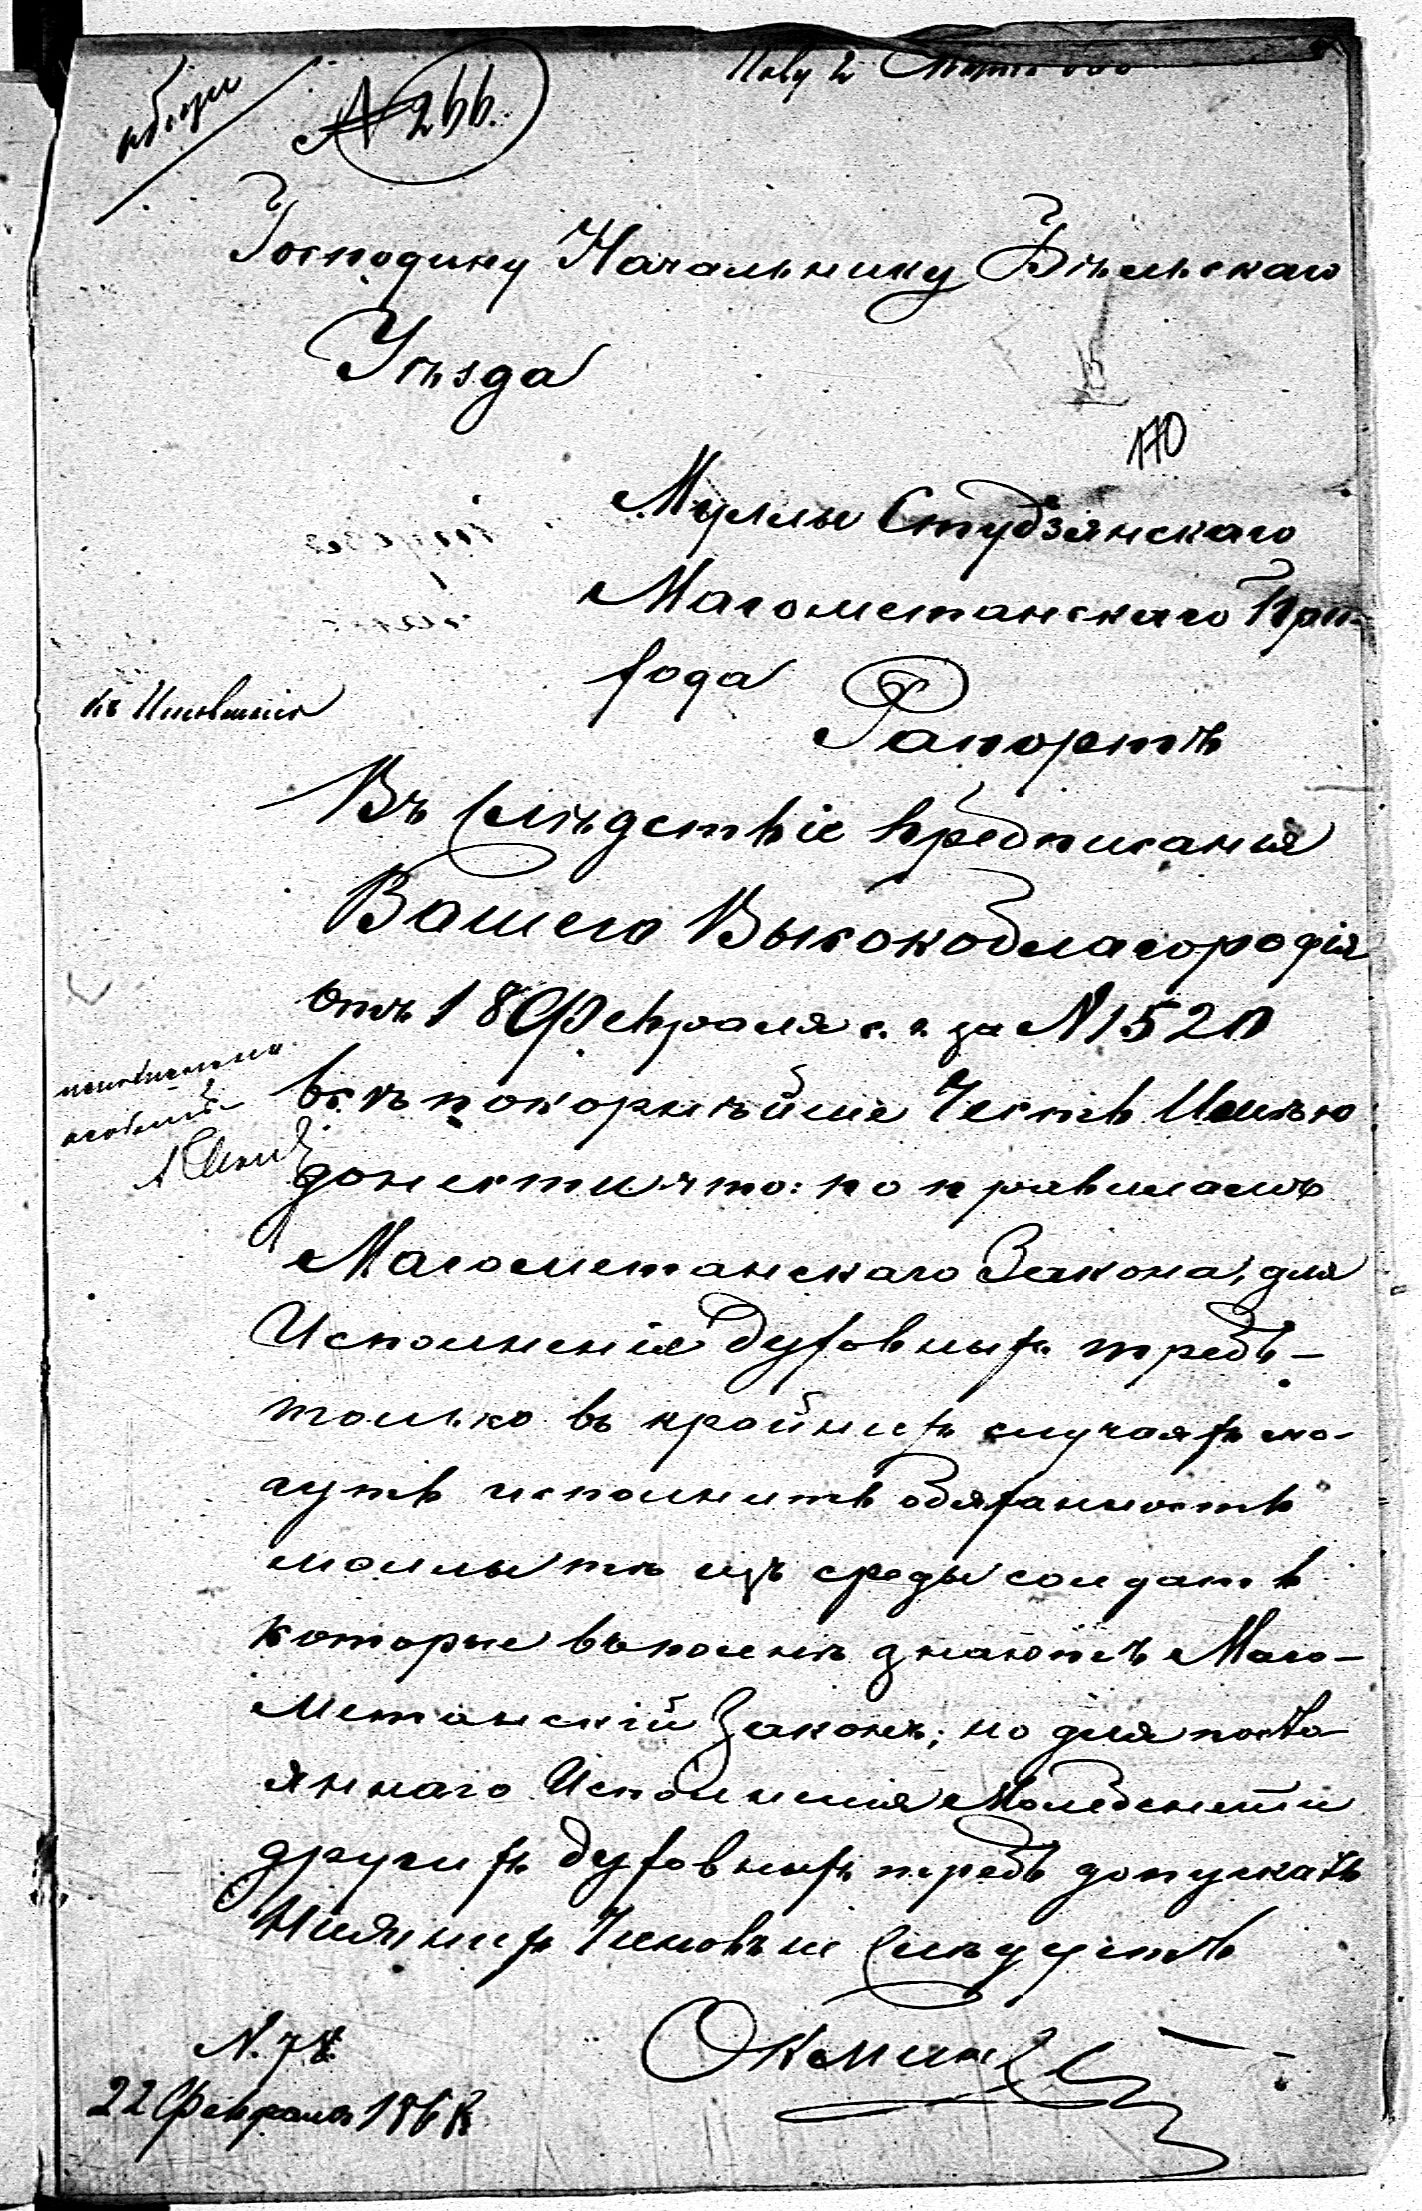 № 266.
Господину Начальнику Бѣльскаго
Уѣзда
170
Муллы Студзянскаго
Магометанскаго При-
хода
Рапортъ
Въ слѣдствіе предписанія
Вашего Высокоблагородія
отъ 18 Февраля с. г. за № 1520
всѣпокорнѣйше Честь Имѣю
донести что: по правиламъ
Магометанскаго Закона, для
Исполненія духовныхъ требъ-
только въ крайнихъ случаяхъ мо-
гутъ исполнить обязанность
моллы тѣ изъ среды солдатъ
которые въполнѣ знаютъ Маго-
метанскій Законъ; но для посто-
яннаго Исполненія Молебснстй
другихъ духовныхъ требъ допускать
Нижнихъ Чиновъ не слѣдуетъ
N. 74.
22 Февраля 1868